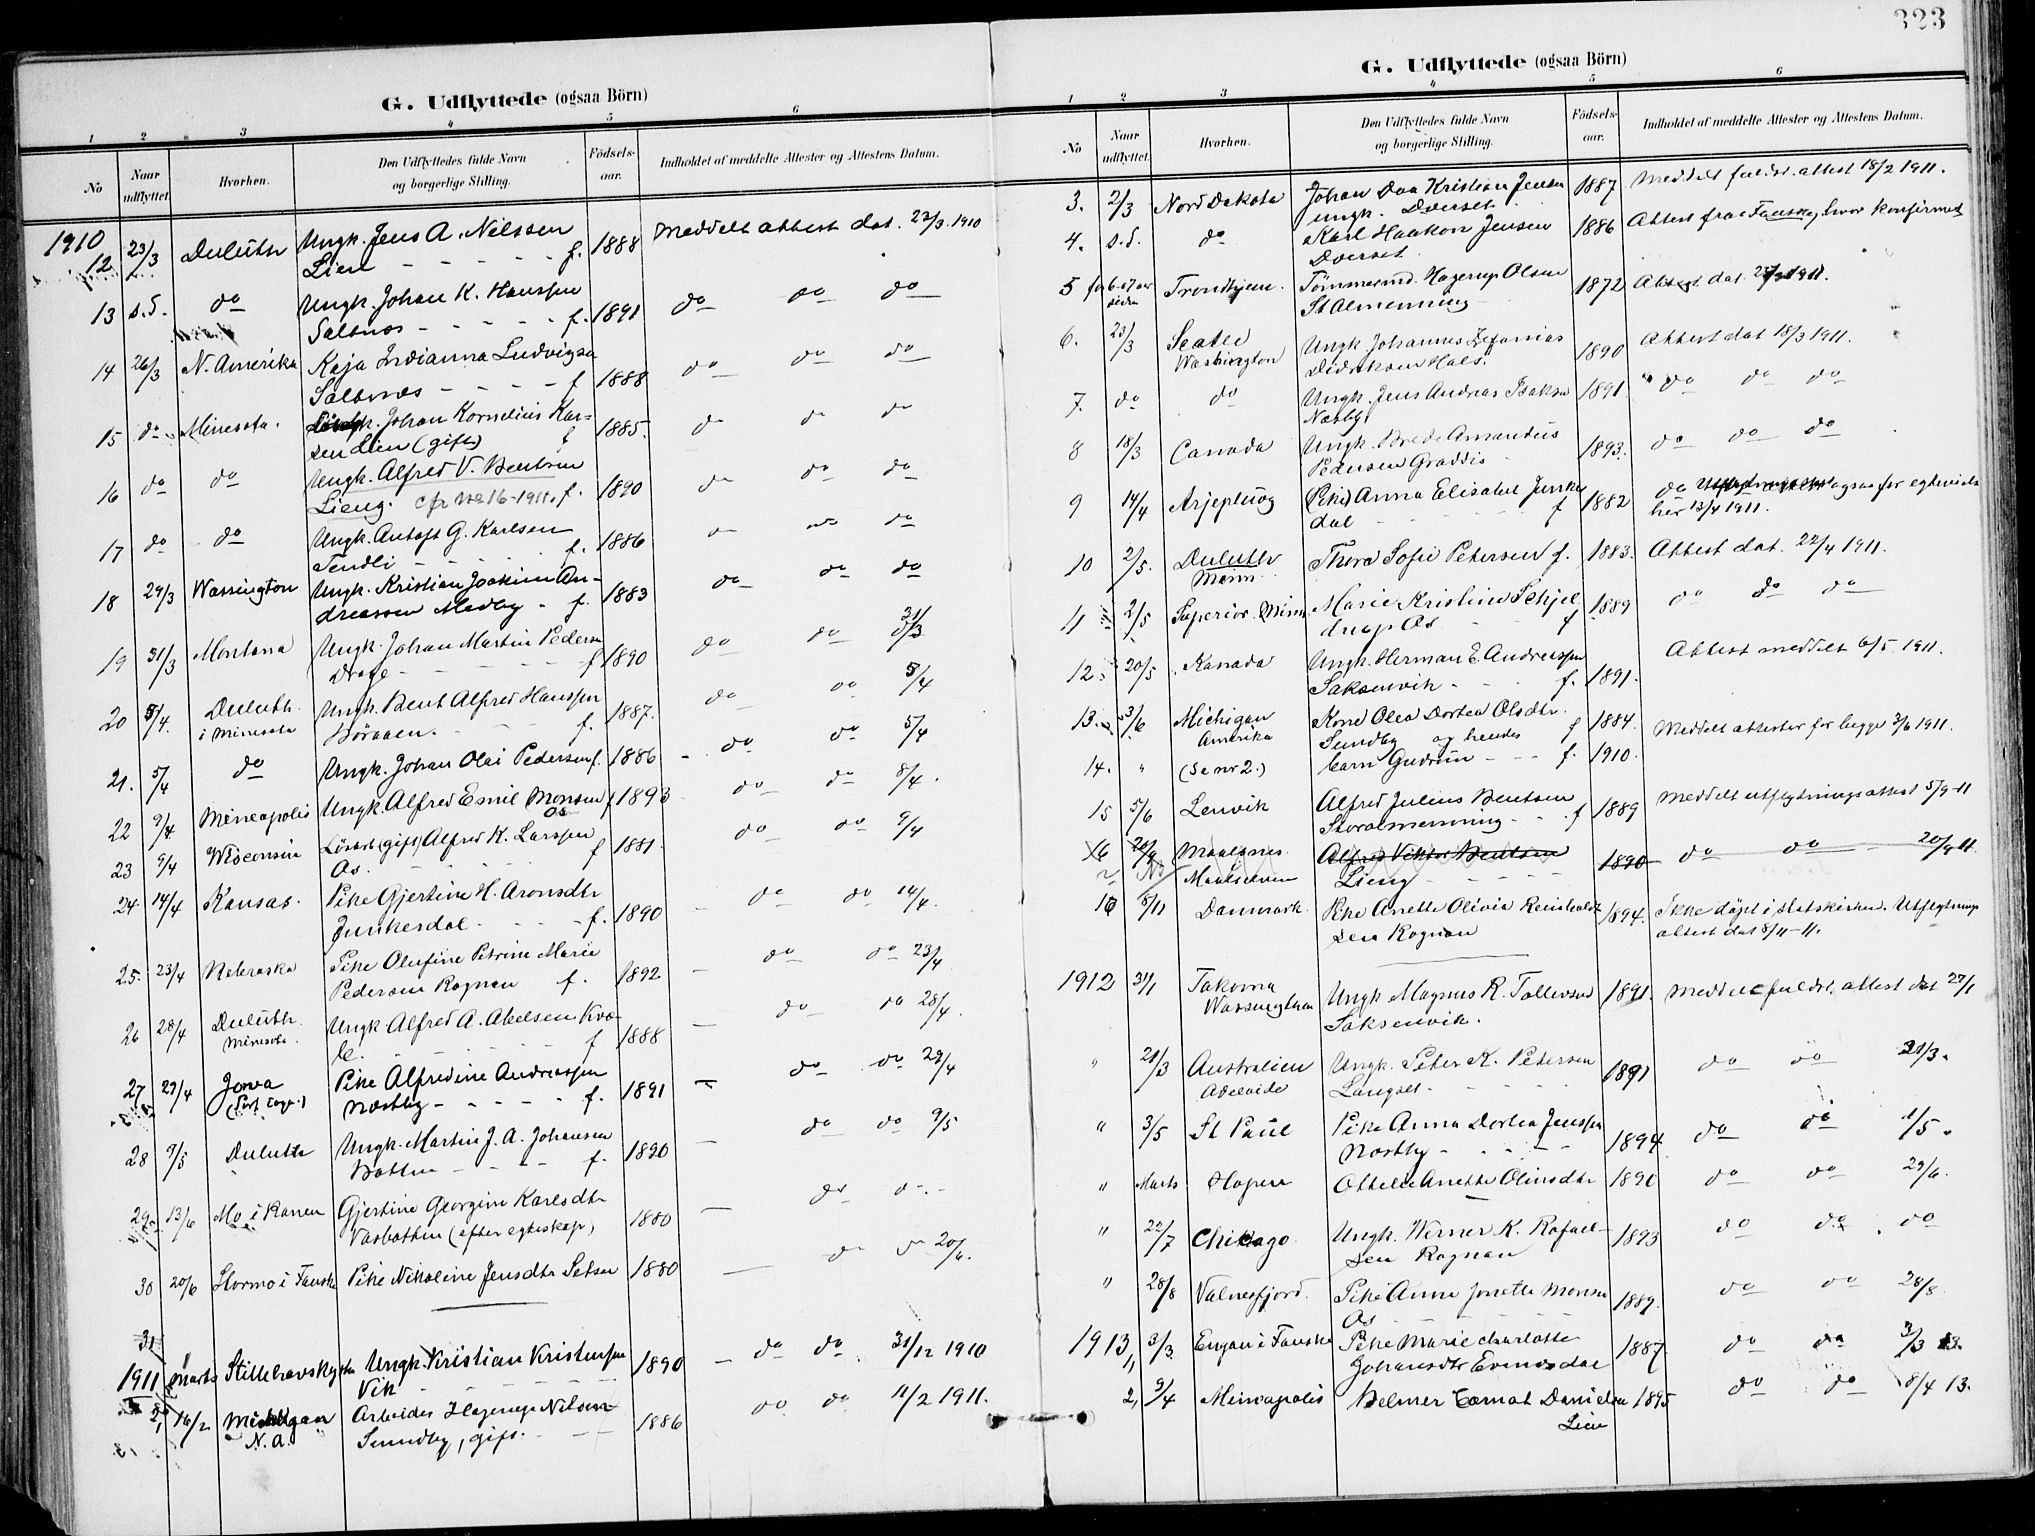 323
G. Udflyttede (ogsaa Börn)
1 2 3 4 5 6
No
Naar udflyttet.
Hvorhen.
Den Udflyttedes fulde Navn
og borgerlige Stilling.
Födsels-
aar.
Indholdet af meddelte Attester og Attestens Datum.
1910
12 23/3 Duluth Ungk. Jens A. Nilssen 1888 Meddelt attest dat. 22/3 1910
Lien f.
13 s.d. do Ungk. Johan K. Hanssen 1891 do do do
Saltnes f.
14 26/3 N. Amerika Kaja Indianna Ludvigsen 1888 do do do
Saltnes f
15 do Minesota. Johan Kornelius Kar= 1885. do do do
sen Lien (gift) f
16 do do Ungk. Alfred V. Bentsen 1890 do do do
Lieng. cfr no 16-1911. f.
17 do do Ungk. G. Karlsen 1886 do do do
f.
18 29/3 Wassington Ungk. Kristian Joakim An- 1883 do do do
dreassen Medby f.
19 31/3 Montana Ungk. Johan Martin Pedersen 1890 do do 31/3
Drage f
20 5/4. Duluth Ungk. Bent Alfred Hanssen 1887. do do 5/4
i Minesota f.
21. 5/4 do Ungk. Johan Olai Pedersen f. 1886 do do 5/4
22 9/4 Mineapolis Ungk. Alfred Emil Monsen f 1893 do do 8/4.
Os
23 9/4 Wisconsin Lösarb. (gift) Alfred K. Larssen f 1881. do do 9/4
Os.
24 14/4 Kansas. Pike Gjertine H. Aronsdtr 1890 do do 14/4.
Junkerdal f.
25. 23/4 Nebraska Pike Olufine Petrine Marie 1892 do do 23/4
Pedersen Rognan f.
26 28/4 Duluth. Ungk Alfred A. Abelsen Kvæ- 1888 do do 28/4.
Minesota. le. f
27 29/4 Jowa Pike Alfredine Andreassen 1891 do do 29/4
Nestby f.
28 9/5 Duluth Ungk. Martin J. A. Johansen 1890 do do 9/5
Botten f.
29 13/6 Mo i Ranen Gjertine Georgine Karlsdtr 1880 do do
Vasbotten (efter egteskap)
30 20/6 Stormo i Fauske Pike Nikoline Jensdtr Setsaa 1880 do do 20/6.
31
1911 marts Stillehavskysten Ungk. Kristian Kristensen 1890 do do 31/12 1910
Vik
2, 16/2 Michigan Arbeider Hagerup Nilsen 1886 do do 11/2 1911.
N.A. Sundby, gift.
G. Udflyttede (ogsaa Börn)
1 2 3 4 5 6
No
Naar
udflyttet.
Hvorhen.
Den Udflyttedes fulde Navn
og borgerlige Stilling.
Födsels-
aar.
Indholdet af meddelte Attester og Attestens Datum.
3. 2/3 Nord Dakota Johan Kristian Jensen 1887 Meddelt fuldst. attest 18/2 1911.
ungk. Dverset
4. s.d. do Karl Haakon Jensen 1886 Attest fra Fauske, hvor konfirmert
Dverset
5 for 6-07 aar siden Trondhjem. Tömmermd. Hagerup Olsen 1872 Attest dat. 1911.
St Almenning
6. 23/3 Seatle Ungk Johannes Zefanias 1890 Attest dat 18/3 1911.
Wasbington Didriksen Hals.
7. do do Ungk. Jens Andreas Isaksen 1891 do do do
Nestby
8 18/3 Canada Ungk. Brede Amandus 1893. do do do
Pedersen Graddis
9 14/4 Arjeplug (Pike) Anna Elisabet Junker 1882 do ogsaa for egteviede
dal f her 13/4 1911.
10 2/5. Duluth Thora Sofie Petersen f. 1883. Attest dat. 22/4 1911.
Minn.
11 2/5 Superior Minn Marie Kristine Schjel 1889 do do do
drup Os f
12. 20/5 Kanada Ungk. Herman E. Andreassen 1891. Attest meddelt 6/5 1911.
Saksenvik f.
13. 3/6 Michigan Kone Olea Dortea Olsdtr. f 1884. Meddelt attester for begge 3/6 1911.
Amerika Sundby og hendes
14. " (se nr 2.) barn Gudrun f. 1910.
15 5/6 Lenvik Alfred Julius Bentsen 1889 Meddelt utflytningsattest 5/9-11
Storalmenning f
16 20/9 Maalsnes Alfred Viktor Bentsen 1890 do do 20/9 11.
Maalselven Lieng
16 8/11 Danmark Pike Anette Olivia Reinholdt 1894. Ikke döpt i statskirken. Utflytnings
sen Rognan attest dat 8/11-11.
1912 31/1 Takoma Ungk Magnus R. Tollevsen 1891. Meddelt fuldst. attest dat 27/1
Wassington Saksenvik.
" 21/3 Australien Ungk. Peter K. Petersen 1891 do do 21/3.
Adelaide Langset
" 3/5 St Paul Pike Anna Dortea Jenssen 1894 do do 1/5.
Nestby
" Marts Hopen Ottelie Anette Olinsdtr 1890 do do 29/6.
" 22/7 Chikago Ungk. Werner K. Rafael- 1893 do do do
sen Rognan
" 28/8 Valnesfjord. Pike Anne Jonette Monsen 1889. do do 28/8
Os
1913 1, 3/3 Engan i Fauske Pike Marie Charlotte 1887 do do 3/3 13.
Johansdtr Evensdal
2, 9/4 Mineapolis Helmer Danielsen 1895 do do 8/4 13.
Lien